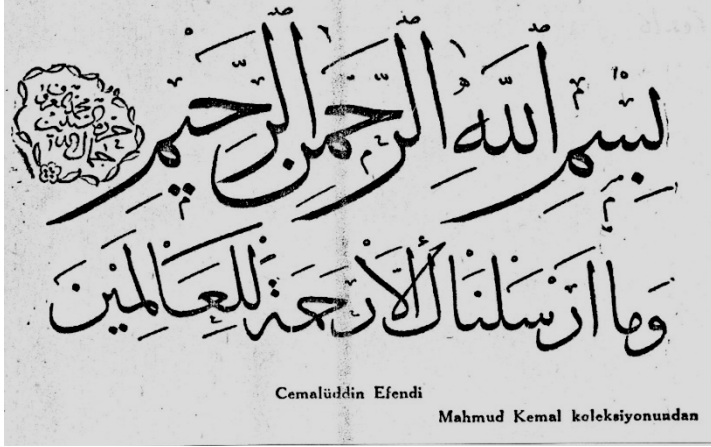 بِسْمِ اللَّهِ الرَّحْمَنِ الرَّحِيمِ
وَمَا أَرْسَلْنَاكَ إِلَّا رَحْمَةً لِلْعَالَمِينَ
Cemalüddin Efendi
Mahmud Kemal koleksiyonundan